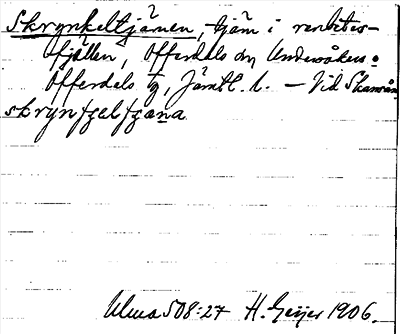 Skrynkeltjärnen, tjärn i renbetes-
fjällen, Offerdals sn, Undersåkers o
Offerdals tg, Jämtl. l. – Vid Skansån
skryntʃeltʃæna
Ulma 508:27 H. Geijer 1906.